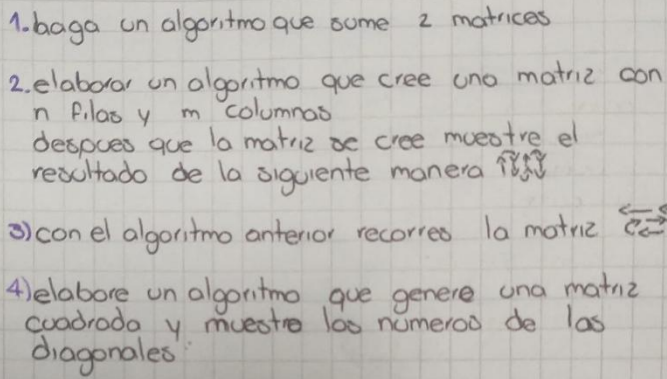 1. haga un algoritmo que sume 2 matrices
2. elaborar un algoritmo que cree una matriz con
n filas y m columnas
despues que la matriz se cree muestre el
resultado de la siguiente manera
3) con el algoritmo anterior recorres la matriz
4) elabore un algoritmo que genere una matriz
cuadrada y muestre los números de las
diagonales